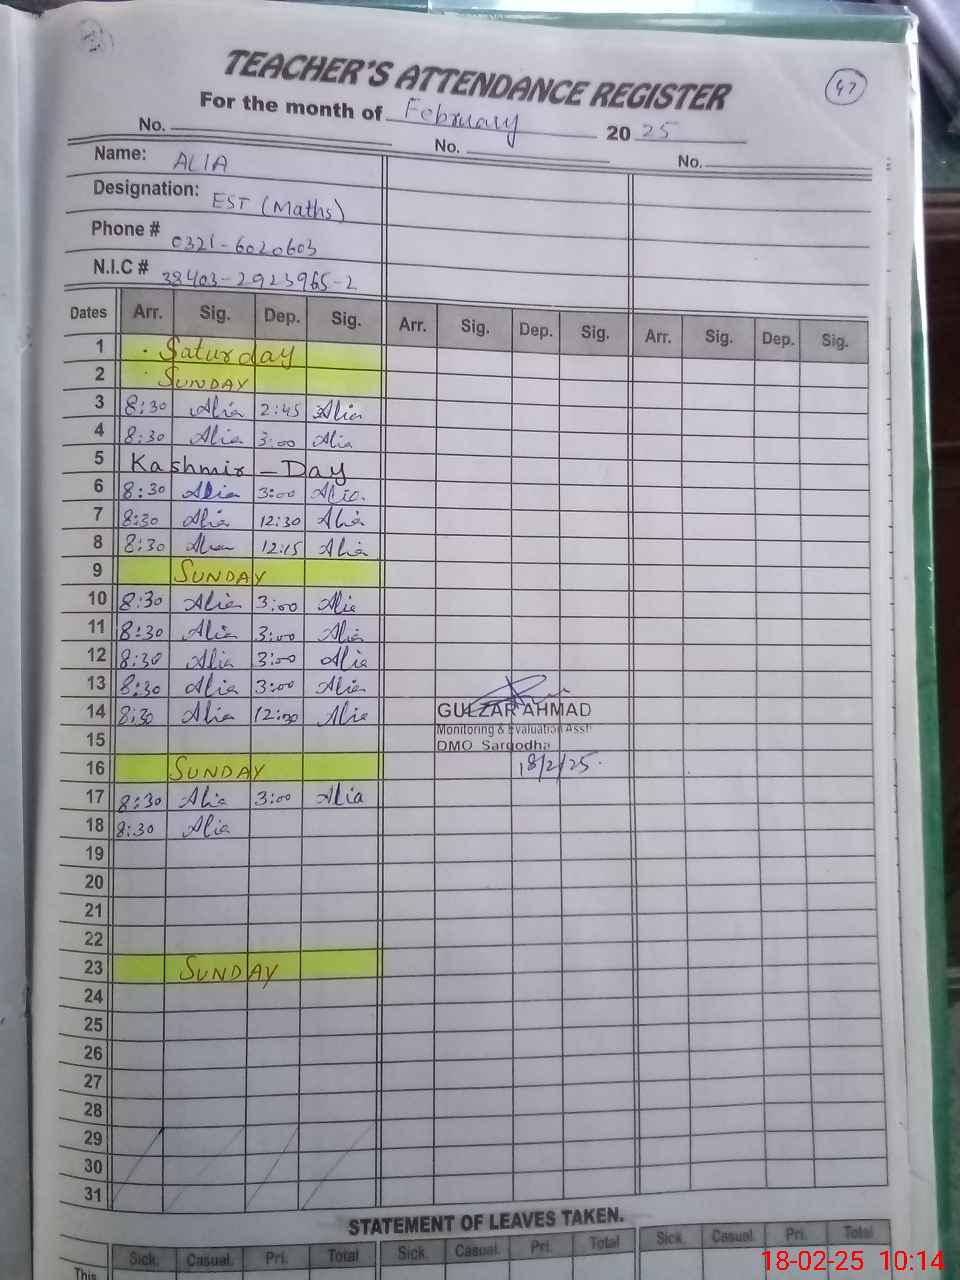 47
TEACHER'S ATTENDANCE REGISTER
For the month of February 2025
No. No. No.
Name: ALIA
Designation: EST (Maths)
Phone # 0321-6020603
N.I.C # 38403-2923965-2
Dates Arr. Sig. Dep. Sig. Arr. Sig. Dep. Sig. Arr. Sig. Dep. Sig.
1 Saturday
2 SUNDAY
3 8:30 Alia 2:45 Alia
4 8:30 Alia 3:00 Alia
5 Kashmir - Day
6 8:30 Alia 3:00 Alia
7 8:30 Alia 12:30 Alia
8 8:30 Alia 12:15 Alia
9 SUNDAY
10 8:30 Alia 3:00 Alia
11 8:30 Alia 3:00 Alia
12 8:30 Alia 3:00 Alia
13 8:30 Alia 3:00 Alia
14 8:30 Alia 12:30 Alia
GULZAR AHMAD
Monitoring & Evaluation Asstt
15
DMO Sargodha
16 SUNDAY
18/2/25.
17 8:30 Alia 3:00 Alia
18 8:30 Alia
19
20
21
22
23 SUNDAY
24
25
26
27
28
29
30
31
STATEMENT OF LEAVES TAKEN.
Sick. Casual. Pri. Total Sick. Casual. Pri. Total Sick. Casual. Pri. Total
This
18-02-25 10:14